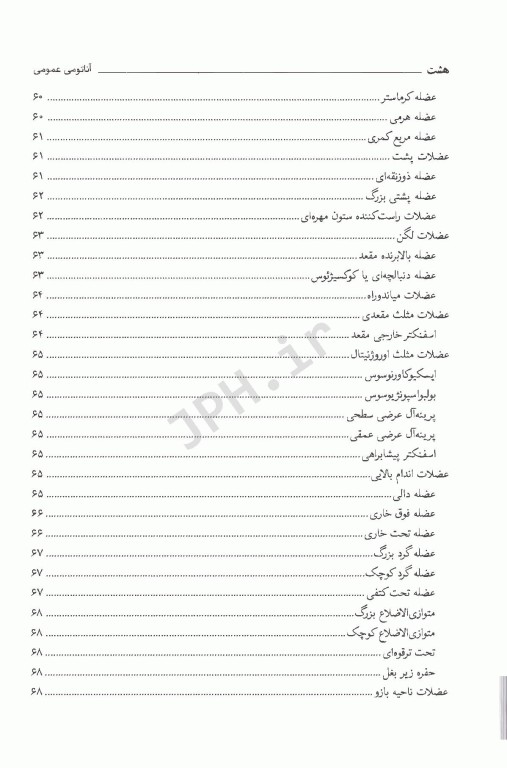 هشت آناتومی عمومی
عضله کرماستر ۶۰
عضله هرمی ۶۰
عضله مربع کمری ۶۱
عضلات پشت ۶۱
عضله ذوزنقه‌ای ۶۱
عضله پشتی بزرگ ۶۲
عضلات راست‌کننده ستون مهره‌ای ۶۲
عضلات لگن ۶۳
عضله بالابرنده مقعد ۶۳
عضله دنبالچه‌ای یا کوکسیژئوس ۶۳
عضلات میاندوراه ۶۴
عضلات مثلث مقعدی ۶۴
اسفنکتر خارجی مقعد ۶۴
عضلات مثلث اوروژنیتال ۶۵
ایسکیوکاورنوسوس ۶۵
بولبواسپونژیوسوس ۶۵
پرینه‌آل عرضی سطحی ۶۵
پرینه‌آل عرضی عمقی ۶۵
اسفنکتر پیشابراهی ۶۵
عضلات اندام بالایی ۶۵
عضله دالی ۶۵
عضله فوق خاری ۶۶
عضله تحت خاری ۶۶
عضله گرد بزرگ ۶۷
عضله گرد کوچک ۶۷
عضله تحت کتفی ۶۷
متوازی‌الاضلاع بزرگ ۶۸
متوازی‌الاضلاع کوچک ۶۸
تحت ترقوه‌ای ۶۸
حفره زیر بغل ۶۸
عضلات ناحیه بازو ۶۸
JPH.ir